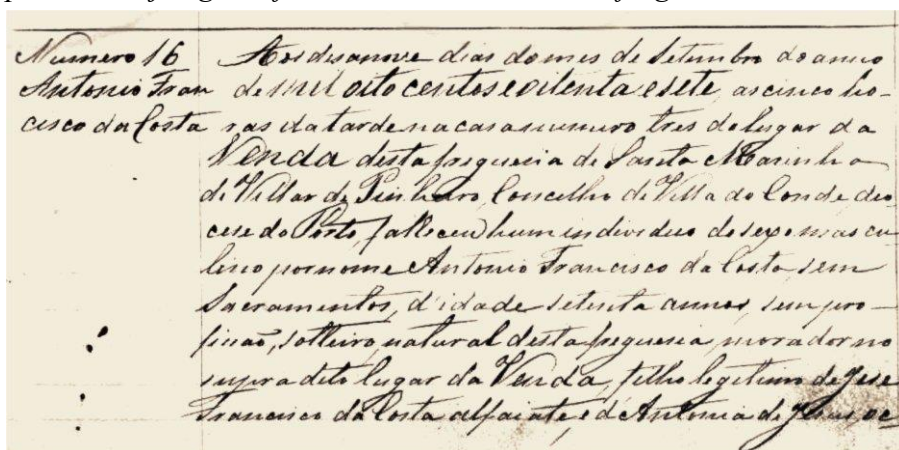 Numero 16
Antonio Fran
cisco da Costa
Aos desanove dias do mes de Setembro do anno
de mil oito centos e oitenta e sete, as cinco ho-
ras da tarde na casa numero tres do lugar da
Venda desta freguezia de Santa Marinha
de Villar de Pinheiro, Concelho de Villa do Conde, dio-
cese do Porto, falleceu hum individuo do sexo mascu
lino por nome Antonio Francisco da Costa, sem
Sacramentos, d'idade setenta annos, sem pro-
fissão, solteiro, natural desta freguesia, morador no
supra dito lugar da Venda, filho legitimo de Jose
Francisco da Costa, alfaiate, e de Antonia de Jesus, oc